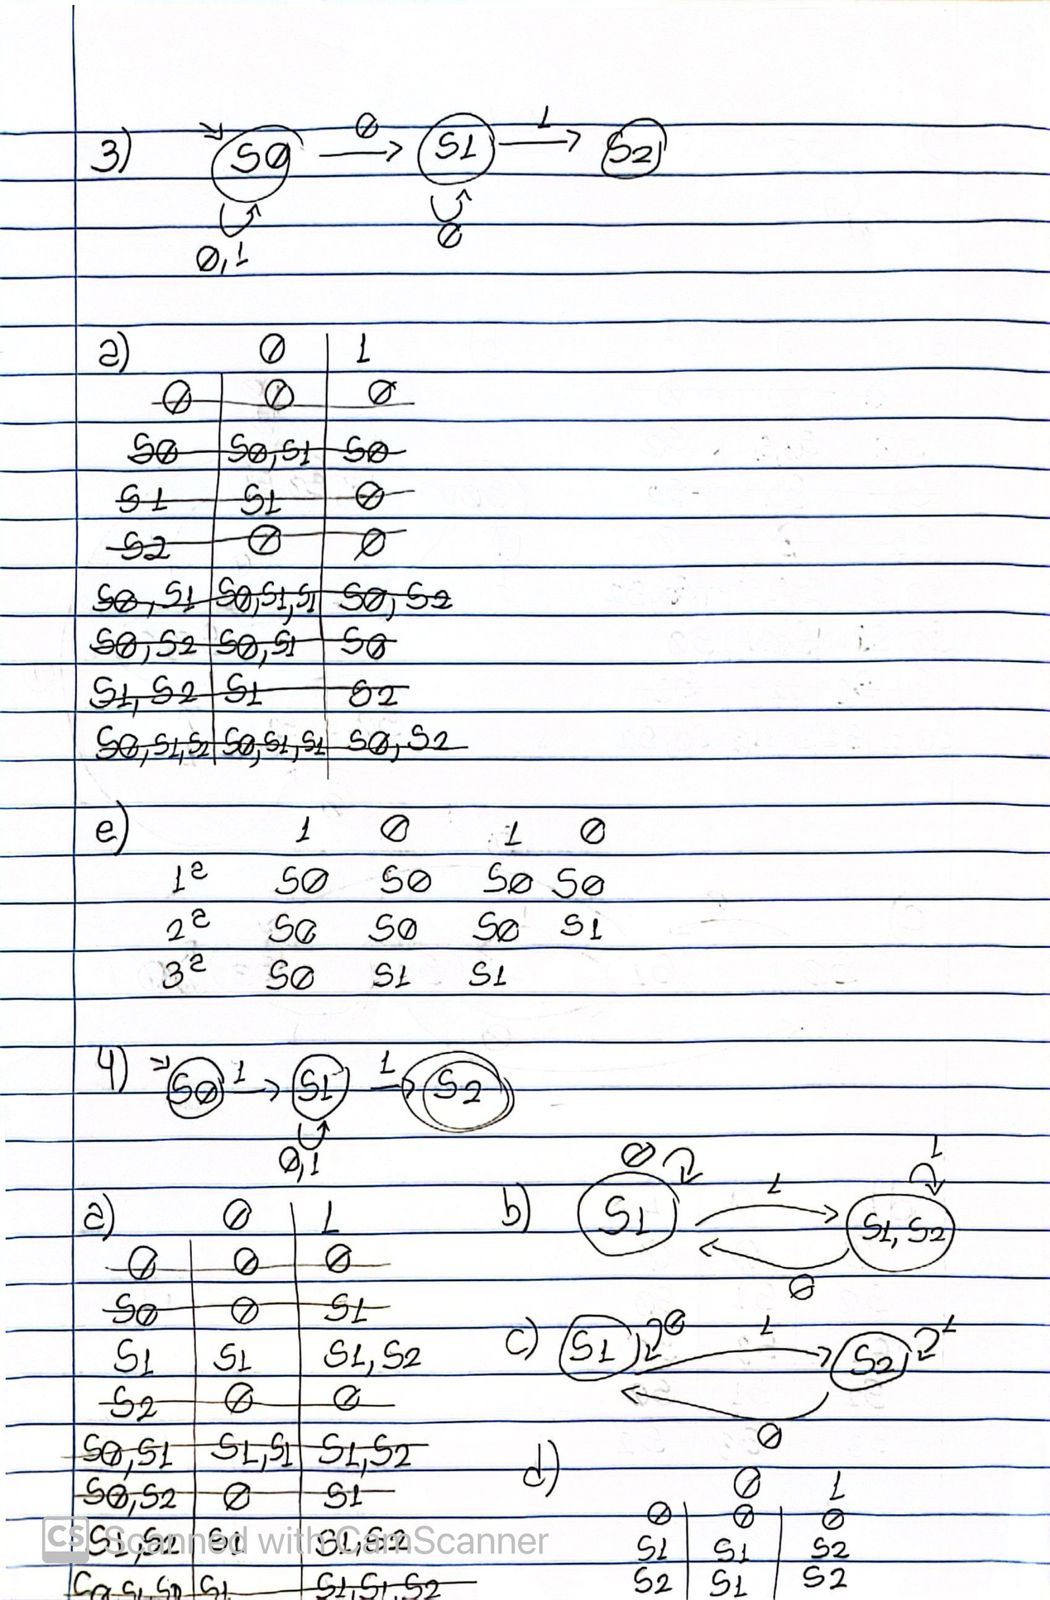 3) S0 0 S1 1 S2
0,1 0
a) 0 1
Ø Ø Ø
S0 S0,S1 S0
S1 S1 Ø
S2 Ø Ø
S0,S1 S0,S1,S1 S0,S2
S0,S2 S0,S1 S0
S1,S2 S1 S2
S0,S1,S2 S0,S1,S1 S0,S2
e) 1 0 1 0
1ª S0 S0 S0 S0
2ª S0 S0 S0 S1
3ª S0 S1 S1
4) S0 1 S1 1 S2
0,1
a) 0 1
Ø Ø Ø
S0 Ø S1
S1 S1 S1,S2
S2 Ø Ø
S0,S1 S1,S1 S1,S2
S0,S2 Ø S1
S1,S2 S1 S1,S2
S0,S1,S2 S1 S1,S1,S2
b) 0 1 1
S1 S1,S2
0
c) S1 0 1 S2 1
0
d) 0 1
Ø Ø Ø
S1 S1 S2
S2 S1 S2
CS Scanned with CamScanner